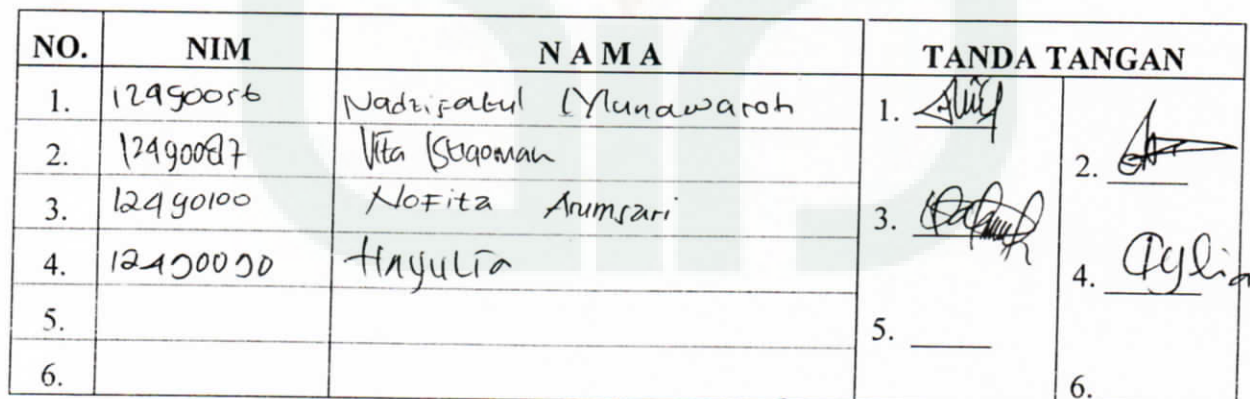 NO. NIM N A M A TANDA TANGAN
1. 12490056 Nadzifatul Munawaroh 1.
2. 12490087 Vita 2.
3. 12490100 Nofita Arumsari 3.
4. 12490090 4.
5. 5.
6. 6.